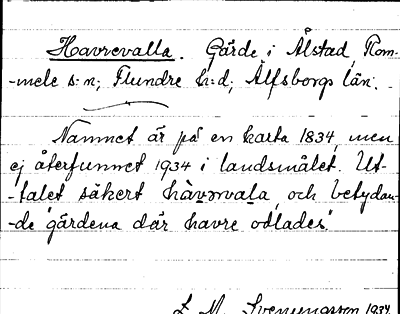 Havrevalla. Gärde i Ålstad, Rom-
-mele s:n; Flundre h:d; Älfsborgs län.
Namnet är på en karta 1834, men
ej återfunnet 1934 i landsmålet. Ut-
-talet säkert hàvrvala, och betydan-
-de "gärdena där havre odlades".
1934